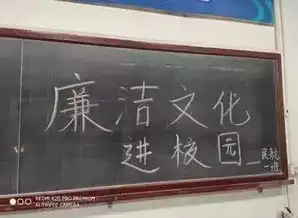 廉洁文化
进校园
民航
一班
REDMI K20 PRO PREMIUM
AI TRIPLE CAMERA